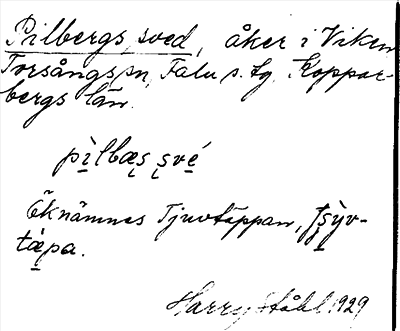 Pilbergs sved, åker i Viken
Torsångs sn, Falu s. tg. Koppar-
bergs län.
pìlbæṣ ṣvé
Öknämnes Tjuvtäppan,
tæpa.
Harry Ståhl 1929